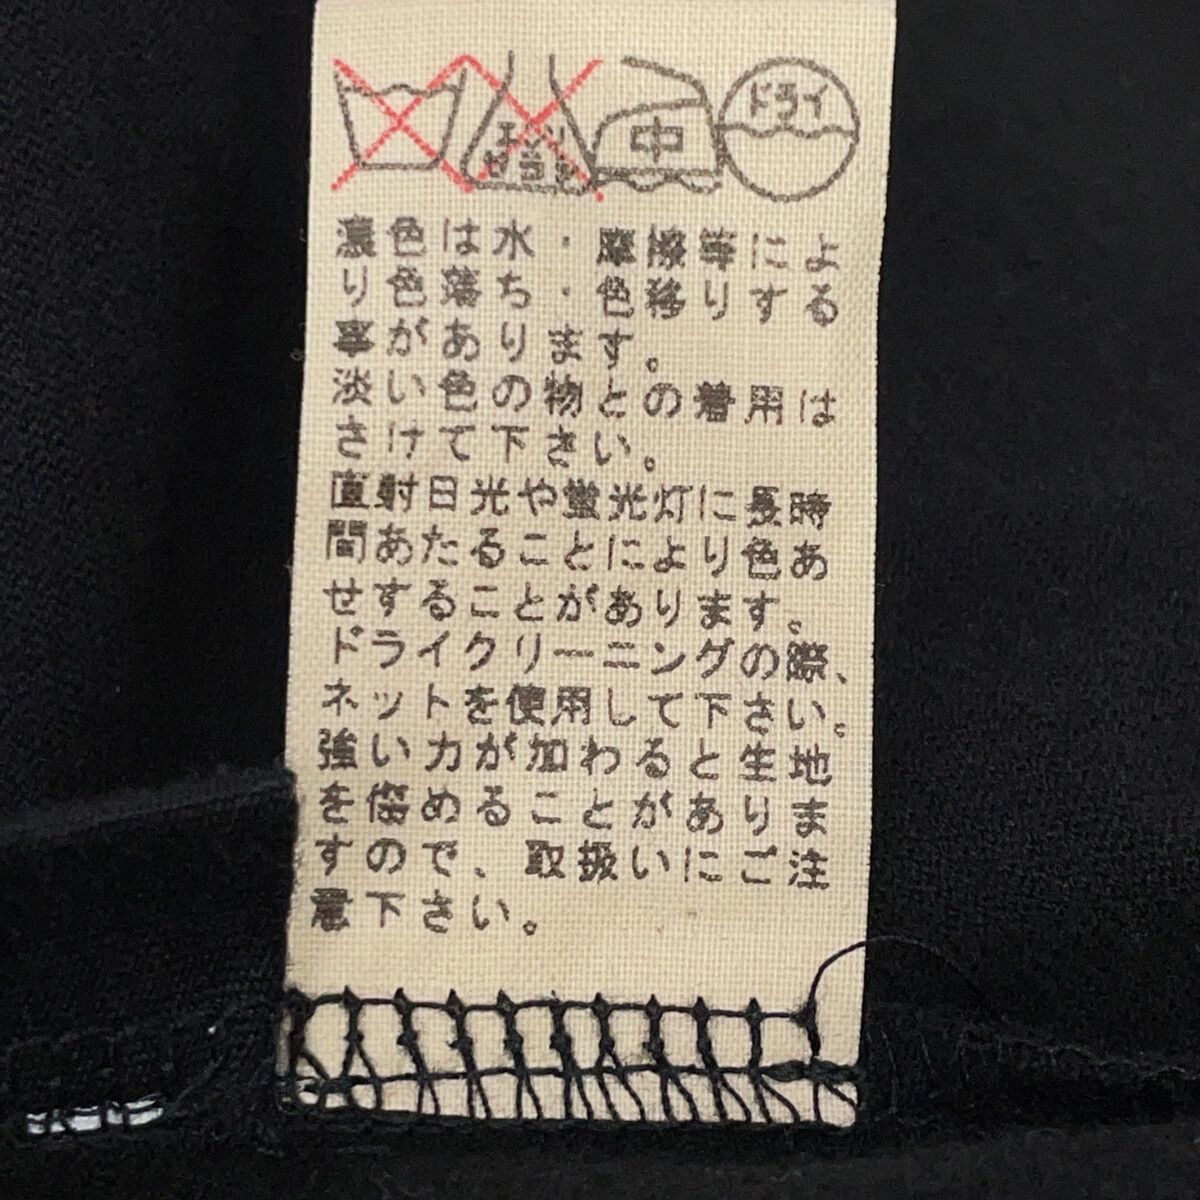 エンソ
サラシ
中
ドライ
濃色は水・摩擦等によ
り色落ち・色移りする
事があります。
淡い色の物との着用は
さけて下さい。
直射日光や蛍光灯に長時
間あたることにより色あ
せすることがあります。
ドライクリーニングの際、
ネットを使用して下さい。
強い力が加わると生地
を傷めることがありま
すので、取扱いにご注
意下さい。